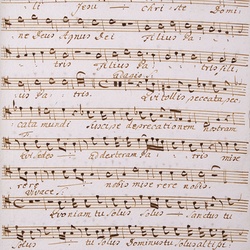 li Jesu Christe Domi
ne Deus Agnus Dei Filius Pa
tris Filius Pa tris fili
us Pa tris. Adagio Qui tollis peccata, pec
cata mundi suscipe deprecationem nostram
qui sedes Ad dexteram Pa tris mise
rere nobis mise rere nobis.
Vivace
Quoniam tu solus Solus sanctus tu
Solus tu Solus Dominus tu solus altissi